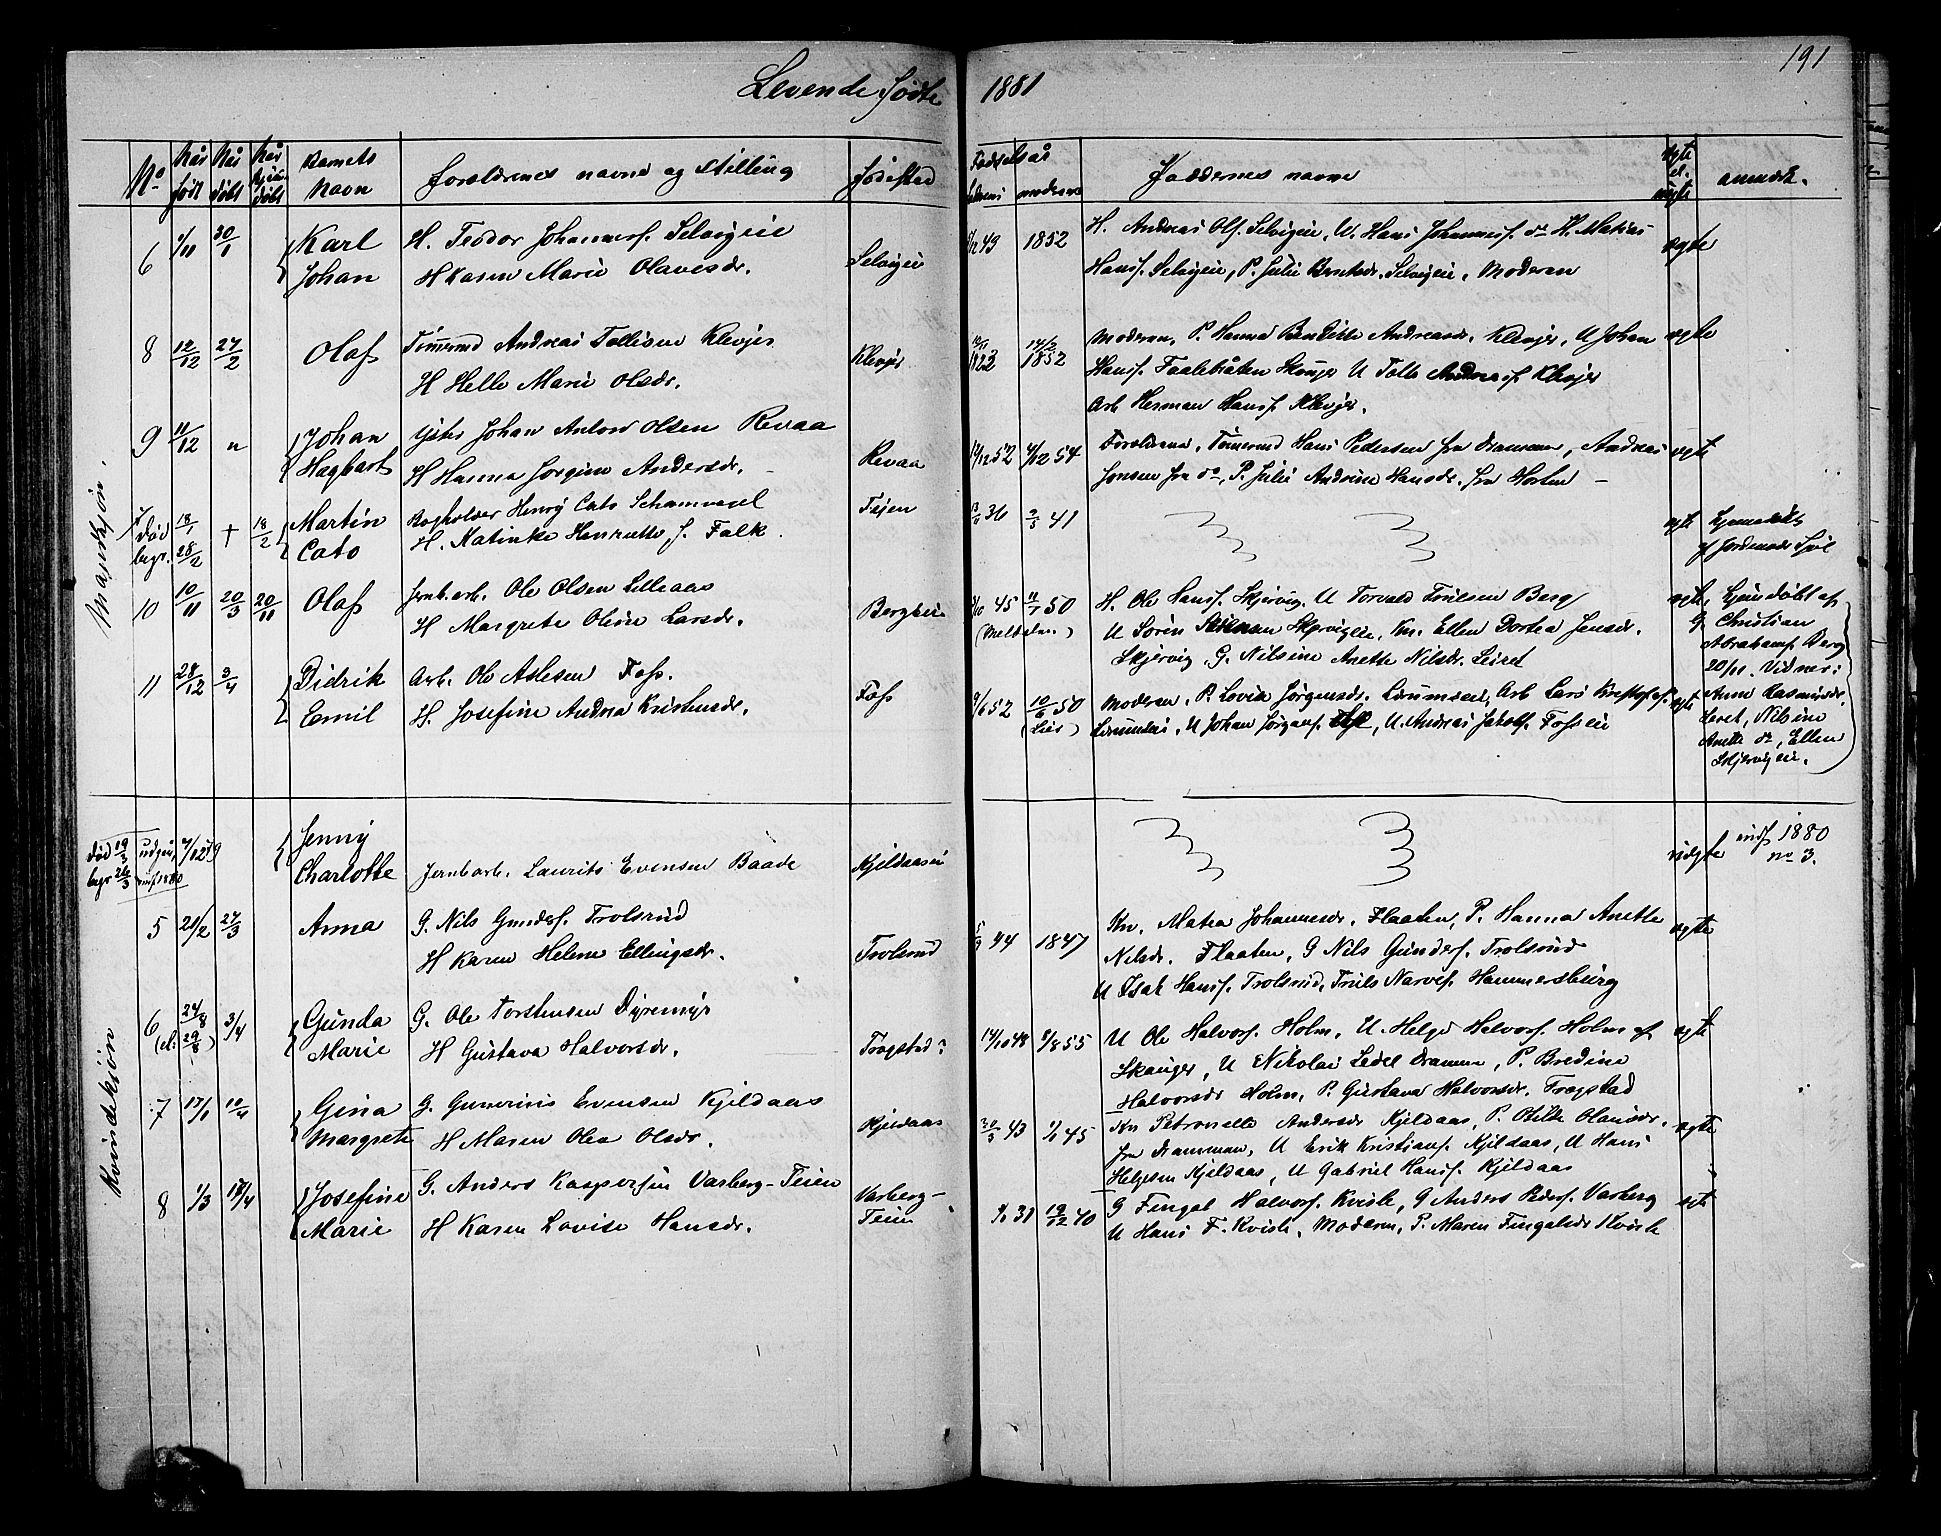 Levende fødte 1881
191
No Når født Når døbt Når hjemdøbt Barnets navn Forældrenes navne og Stilling Fødested Fødselsår moderens Faddernes navne ægte el. uægte anmærk.
Mandkjøn.
6 30/1 Karl Johan
H. Teodor Johannesf. Selvigeie
H Karen Marie Olavesdr.
Selvigeie 49 1852
H. Andreas Ols. Selvigeie, U. Hans Johannesf. do H. Matias
Hansf. Selvigeie, P. Julie Berntsdr. Selvigeie, Moderen
ægte
8 12/12 27/2 Olaf
Tømmermd Andreas Tollesen Klevjer
H Helle Marie Olsdr.
Klevjer 14/2 1852
Moderen, P. Hanna Bendikte Andreasdr. Klevjer, U Johan
Hansf. Skouger U Tolle Andreasf. Klevjer
Arb Herman Hansf. Klevjer.
ægte
9 11/12 " Johan Hagbart
Johan Anton Olsen Revaa
H Hanna Jorgine Andersdr.
Revaa 52 54
Forældrene, Tømmermd Hans Pedersen fra Drammen, Andreas
Jensen fra do, P. Julie Andrine Hansdr. fra Horten
ægte
7 død begr. 28/2 18/1 + 18/2 Martin Cato
Bogholder Henry Cato
H. Katinka Henriette f. Falk
Teien 36 41
ægte Hjemmedøbt af Jordemoder
10 10/11 20/3 20/11 Olaf
Jernb.arb. Ole Olsen Lilleaas
H Margrete Oline Larsdr.
Bergseie 45 50
H. Ole Hansf. Skjervig. U Torvald Trulsen Berg
U Søren Skjervigeie, Kn. Ellen Dortea Jensdr.
Skjervig. G. Nilsine Anette Nilsdr. Leiret
ægte, Hjemdøbt af
G. Christian
Abrahamf. Berg
20/11. Vidner:
Anne Rasmusdr.
Leret, Nilsine
Anette do, Ellen
Skjervigeie.
11 28/12 3/4 Didrik Emil
Arb. Ole Aslesen Foss.
H. Josefine Andrea Kristensdr.
Foss 9/6 52 10/6 50 (Lier)
Moderen, P. Lovise Jørgensdr. Linnumseie, Arb Lars Kristofersf.
U Johan Jørgensf. U. Andreas Jakobf. Fosseie
ægte
Kvindekjøn
død 19/3 begr 26/3 udgaar Jenny Charlotte
Jernb.arb. Laurits Evensen Baade
Kjeldaaseie
uægte indf 1880 no 3.
5 21/2 27/3 Anna
G. Nils Gundersf. Trolsrud
H Karen Helene Ellingsdr.
Trolsrud 44 1847
Kn. Matea Johannesdr. Flaaten, P. Hanna Anette
Nilsdr. Flaaten, G Nils Gundersf. Trolsrud
U Isak Hansf. Trolsrud, Truls Narvef. Hammersburg
ægte
6 24/8 (el. 29/8) 3/4 Gunda Marie
G. Ole Torstensen Dyremyr
H Gustava Halvorsdr.
Trogstad? 14/10 48 9/8 55
U Ole Halvorsf. Holm, U. Helge Halvorsf. Holm af
Skouger, U Nikolai Ledel Drammen, P. Bredine
Halvorsdr Holm, P. Gustava Halvorsdr. Trogstad
ægte
7 17/1 10/4 Gina Margrete
G. Gunerius Evensen Kjeldaas
H Maren Olea Olsdr.
Kjeldaas 43 1/1 45
Kn Petronelle Andersdr Kjeldaas, P. Otilde Olausdr.
fra Drammen, U Erik Kristiansf. Kjeldaas, U Hans
Helgesen Kjeldaas, U Gabriel Hansf. Kjeldaas
ægte
8 1/3 17/4 Josefine Marie
G. Anders Kaspersen Varberg-Teien
H Karen Lovise Hansdr.
Varberg-Teien 31 19/12 40
G Fingal Halvorsf. Kvisle, G Anders Pedersf. Varberg
U Hans F. Kvisle, Moderen, P. Maren Fingalsdr Kvisle
ægte